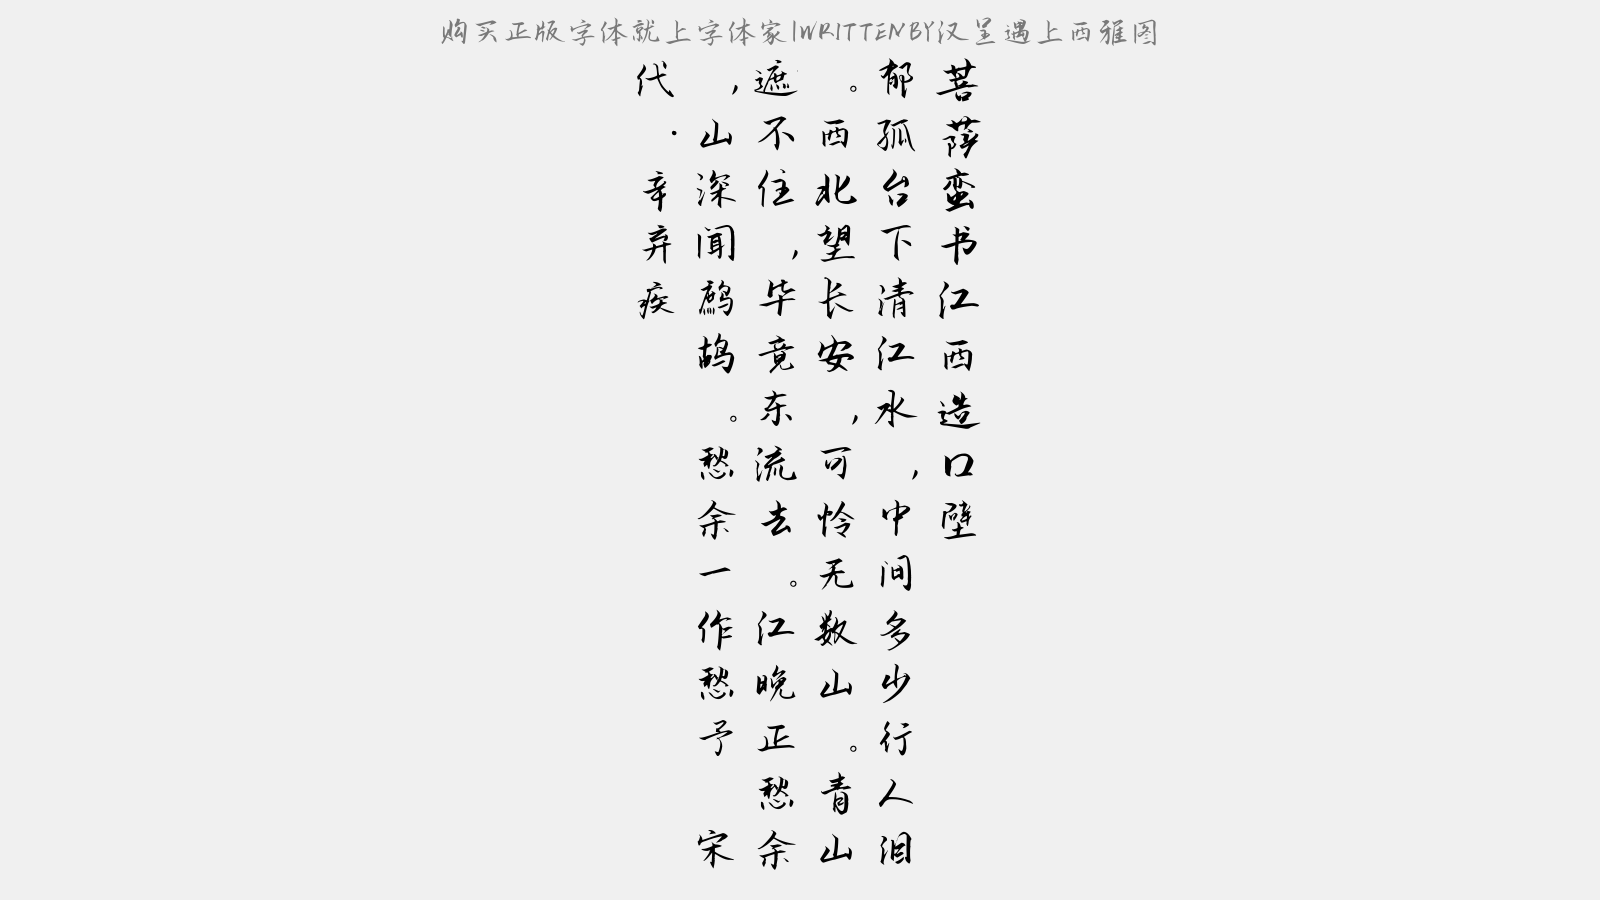 购买正版字体就上字体家|WRITTENBY汉呈遇上西雅图
菩萨蛮书江西造口壁
郁孤台下清江水，中间多少行人泪
。西北望长安，可怜无数山。青山
遮不住，毕竟东流去。江晚正愁余
，山深闻鹧鸪。愁余一作愁予 宋
代·辛弃疾